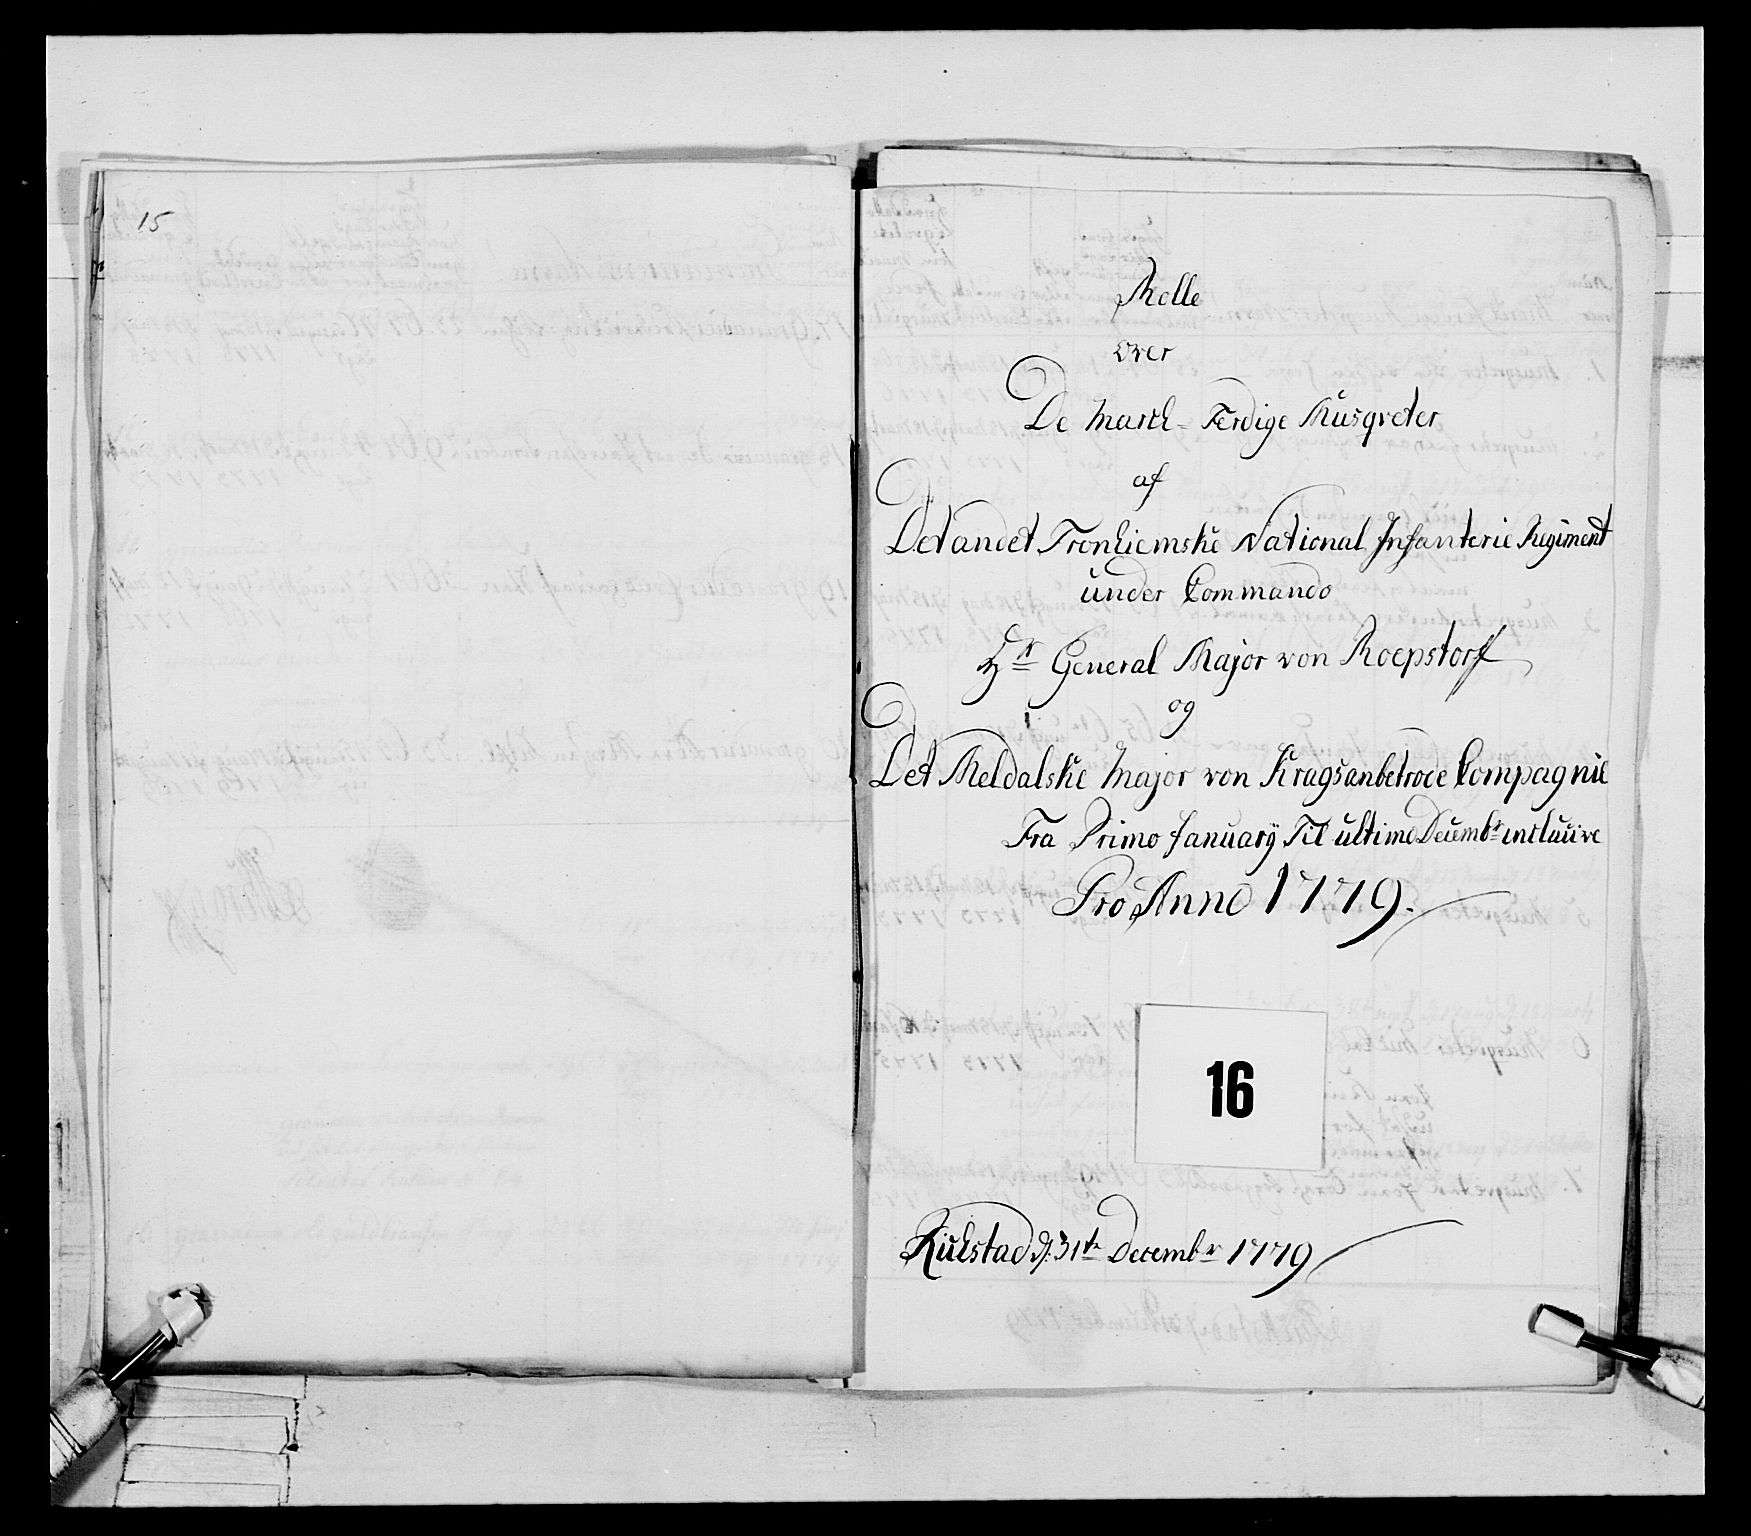 15
Rolle
over
De March-Færdige Musqveter
af
Det andet Tronhiemske National Infanterie Regiment
under Commando
Hr General Major von Roepstorff
og
Det Meldalske Major von Krags anbetroede Compagnie
Fra Primo January Til ultimo Decembr inclusive
Pro Anno 1779.
16
d. 31te Decembr 1779